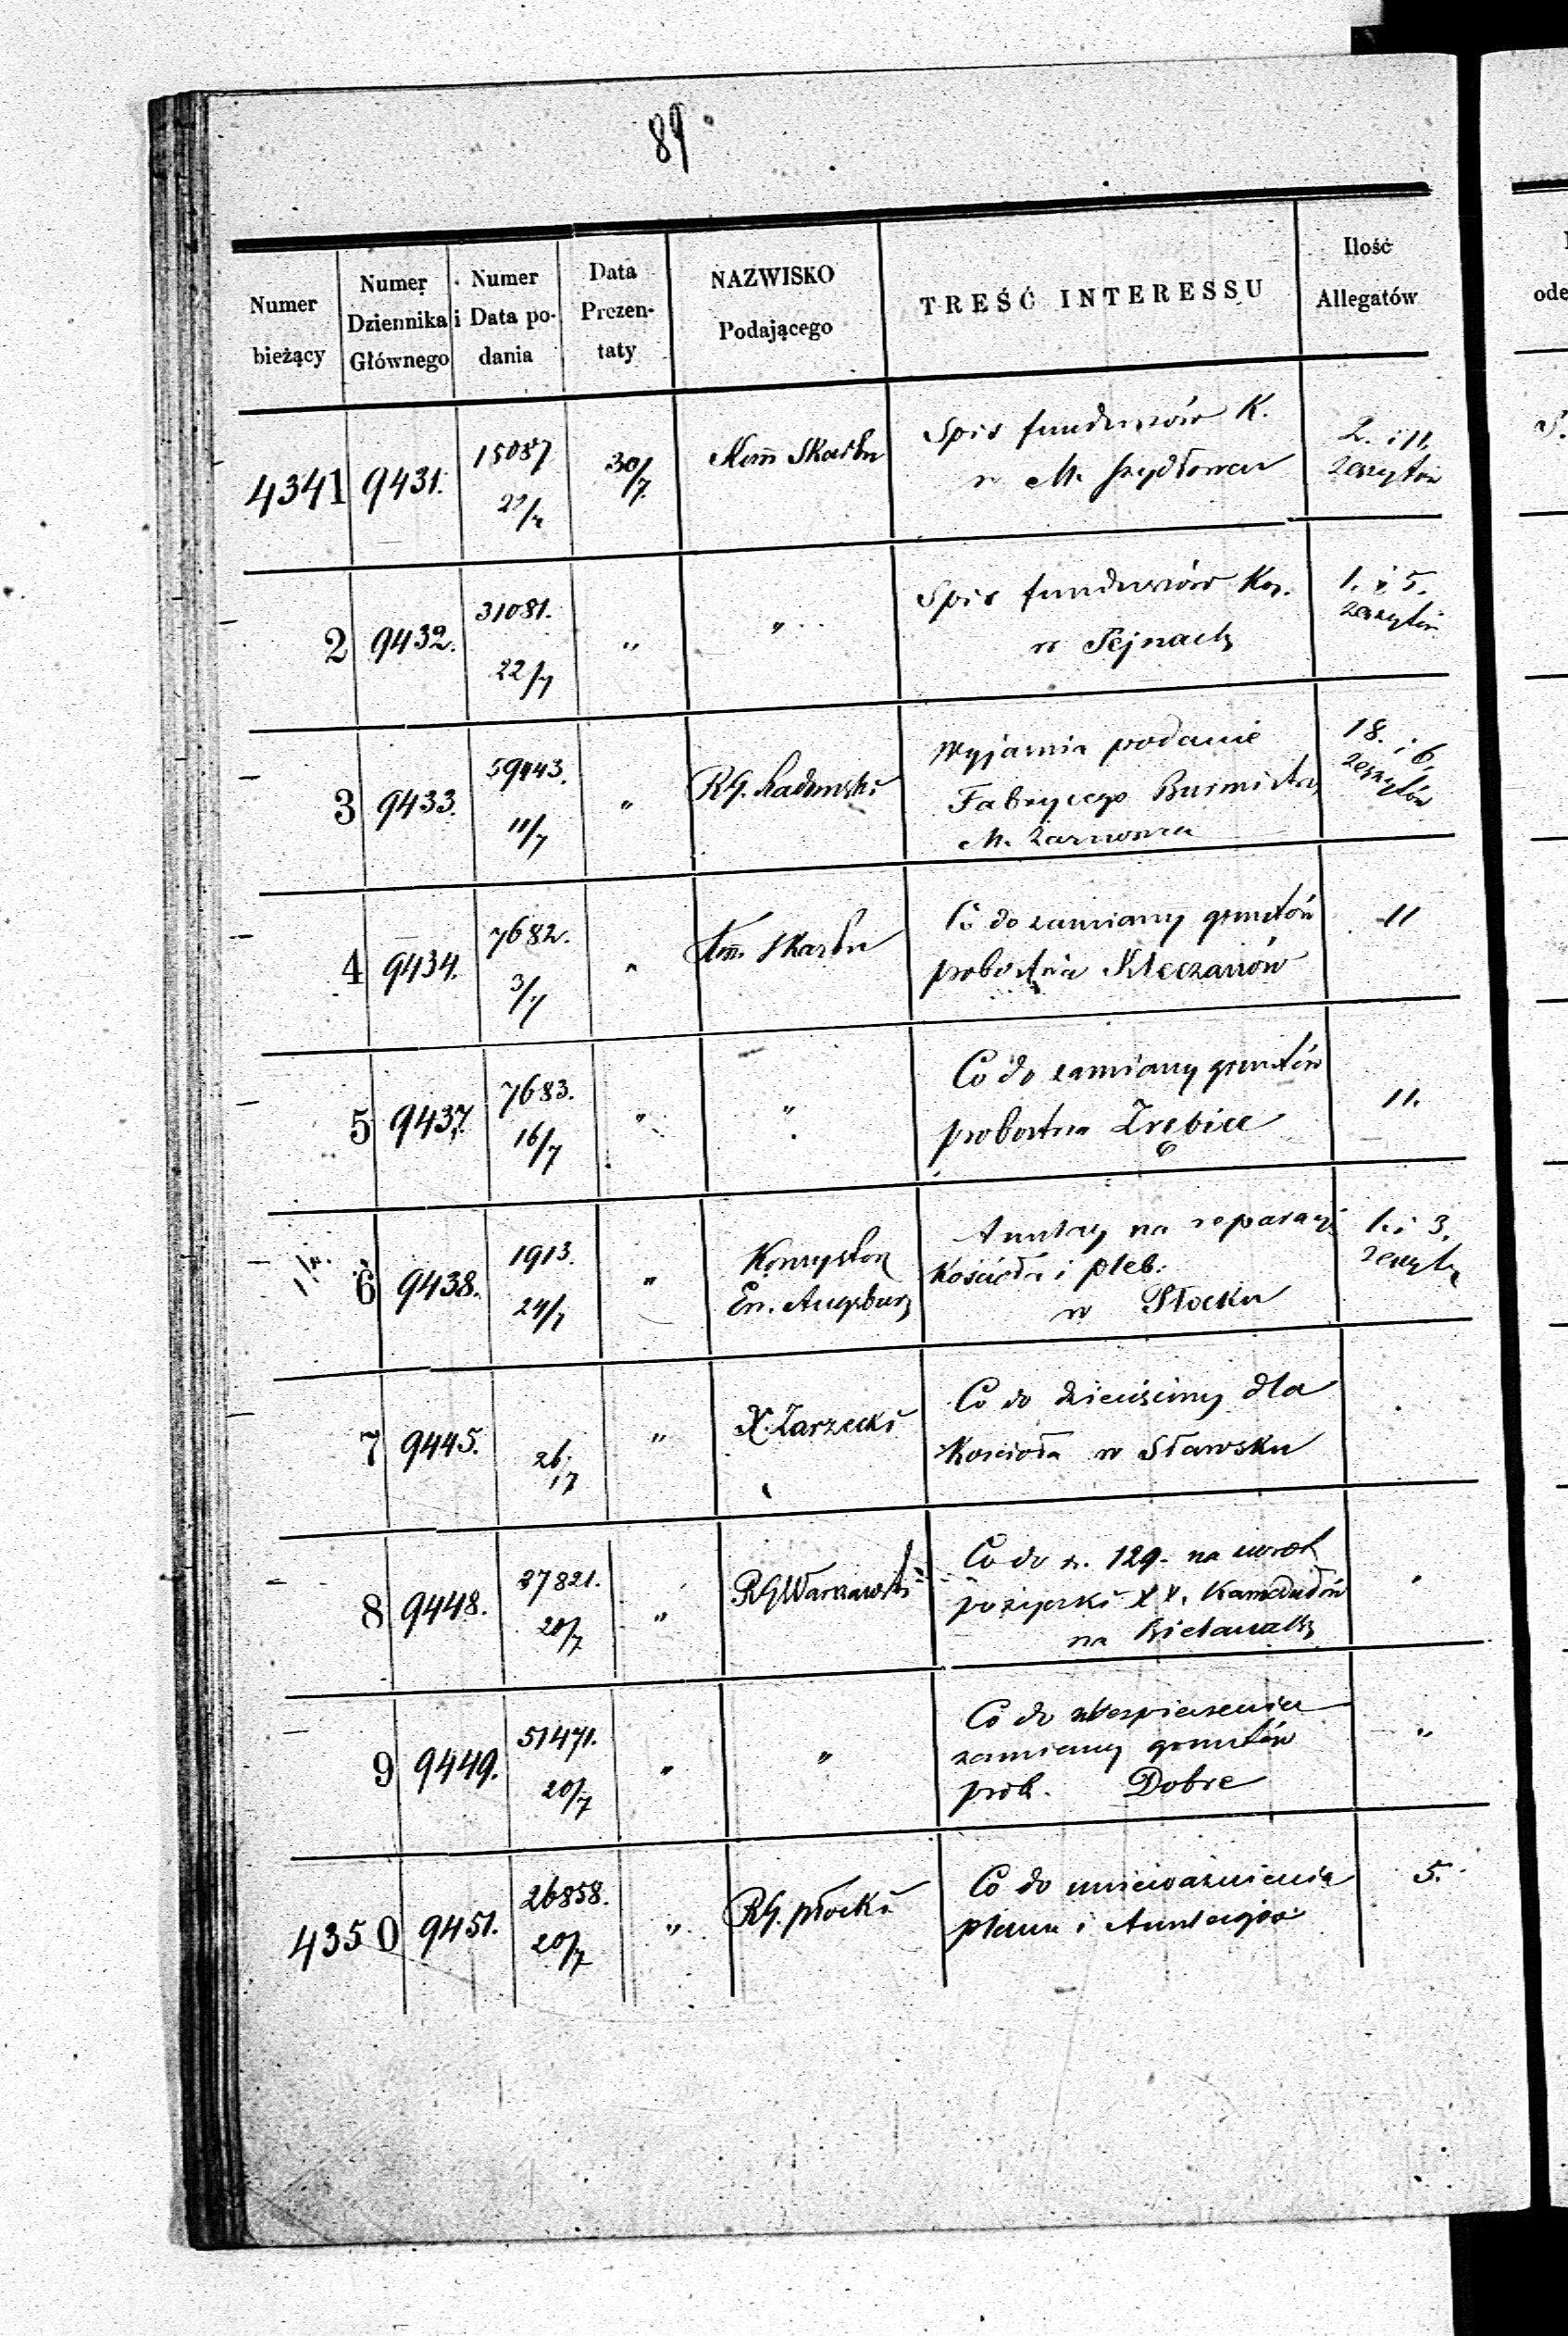 89
Numer bieżący | Numer Dziennika Głównego | Numer i Data podania | Data Prezentaty | NAZWISKO Podającego | TREŚĆ INTERESSU | Ilość Allegatów
4341 | 9431. | 15087 22/7 | 30/7. | Kom̄ Skarbu | Spis funduszów K. w M. Szydłowcu | 2. i 11. zeszytów
2 | 9432. | 31081. 22/7 | " | " | Spis funduszów Koś. w Sejnach | 1. i 5. zeszytów
3 | 9433. | 59443. 11/7 | " | RG. Radomski | Wyjaśnia podanie Fabrycego Burmistrza M. Żarnowca | 18. i 6. zeszytów
4 | 9434. | 7682. 3/7 | " | Kom̄. Skarbu | Co do zamiany gruntów probostwa Kleczanów | 11
5 | 9437. | 7683. 16/7 | " | " | Co do zamiany gruntów probostwa Zrębice | 11.
6 | 9438. | 1913. 24/7 | " | Konsystorz Ew. Augsburg | Anszlag na reparacyą Kościoła i pleb. w Płocku | 1. i 3. zeszyty
7 | 9445. | 26/17 | " | X. Zarzecki | Co do dziesięciny dla Kościoła w Sławsku
8 | 9448. | 37821. 20/7 | " | RG Warszawski | Co do r. 129. na pożyczki XX. Kamedułów na Bielanach
9 | 9449. | 51471. 20/7 | " | " | Co do ubezpieczenia zamiany gruntów prob. Dobre | "
4350 | 9451. | 26858. 20/7 | " | RG. płocki | Co do unieważnienia planu i Anszlagów | 5.